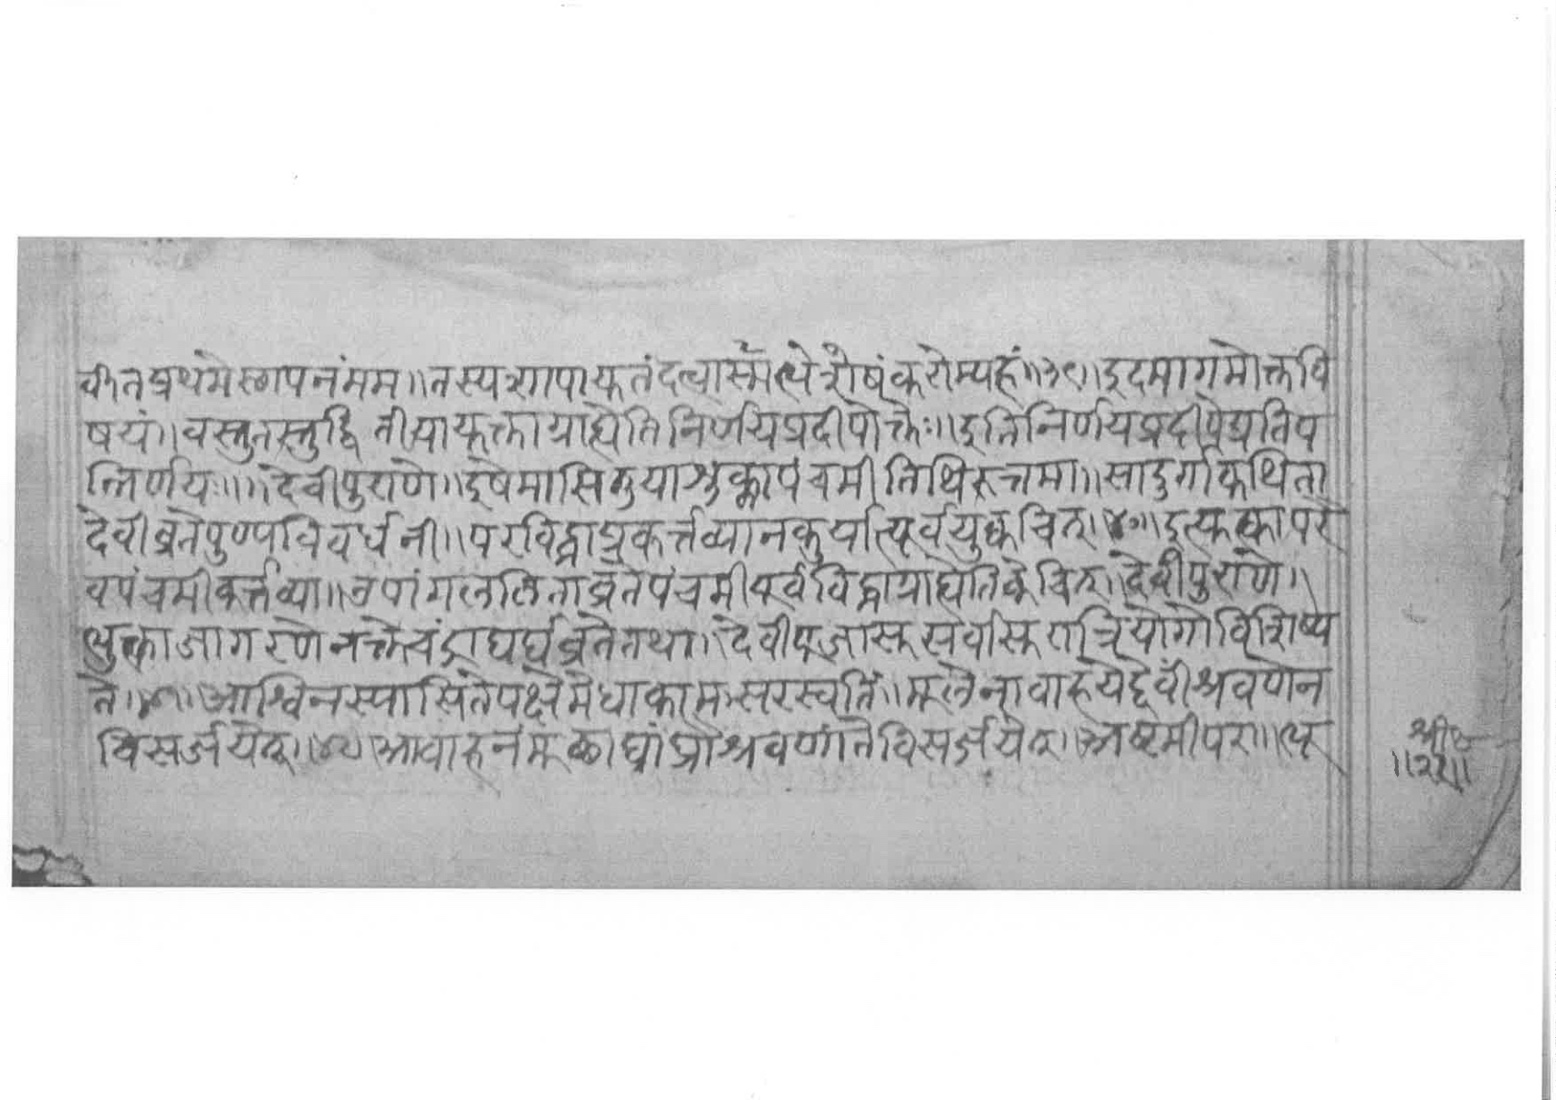 र्वीत प्रथमे स्थापनं मम ॥ तस्य शापायुतं दत्वा भस्म शेषं करोम्यहं ॥३९॥ इदमागमोक्तवि
षयं ॥ वस्तुतस्तु द्वितीयायुक्ता ग्राह्येति निर्णयप्रदीपोक्तेः ॥ इति निर्णयप्रदीपे प्रतिप
न्निर्णयः ॥॥ देवीपुराणे ॥ इषे मासि तु या शुक्ला पंचमी तिथिरुत्तमा ॥ सा दुर्गा कथिता
देवी व्रते पुण्यविवर्धनी ॥ परविद्धा प्रकर्त्तव्या न कुर्यात्पूर्वयुक् क्वचित् ॥४०॥ इत्युक्त्वा परै
व पंचमी कर्त्तव्या ॥ उपांगललिताव्रते पंचमी पूर्वविद्धा ग्राह्येति केचित् ॥ देवीपुराणे ॥
भुक्त्वा जागरणे नक्ते चंद्रार्घार्घव्रते तथा ॥ देवीपूजासु सर्वासु रात्रियोगो विशिष्य
ते ॥४१॥ आश्विनस्यासिते पक्षे मेधाकामः सरस्वतिं ॥ मूलेनावाहयेद्देवीं श्रवणेन
विसर्जयेत् ॥४२॥ आवाहनं मूला श्रवणांते विसर्जयेत् ॥ अष्टमी परा ॥
॥२१॥